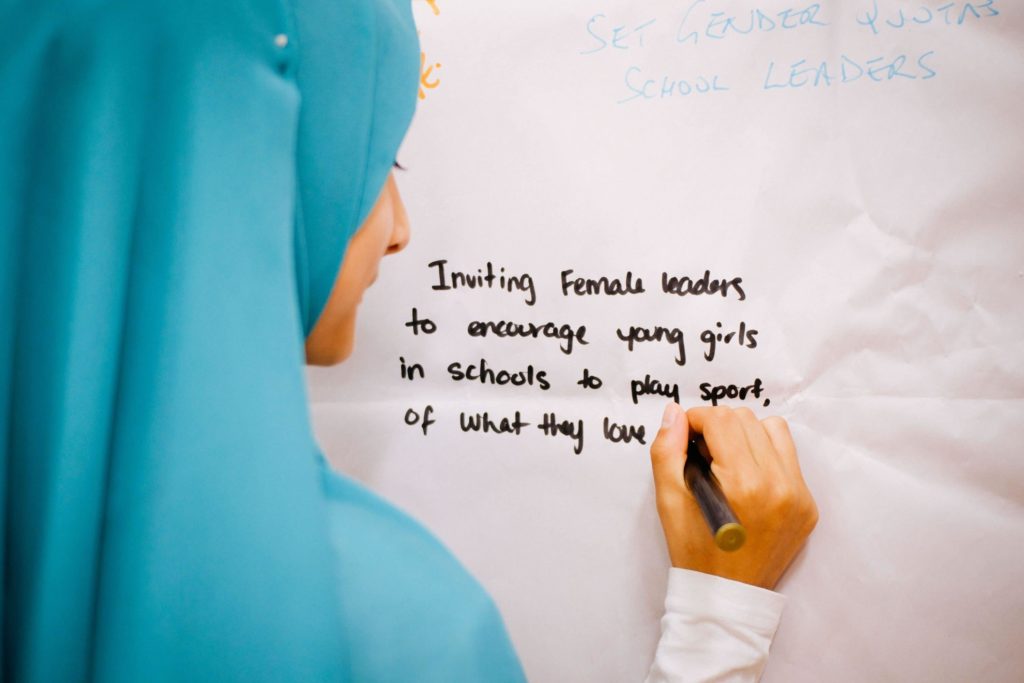 SET GENDER QUOTAS
SCHOOL LEADERS
Inviting Female leaders
to encourage young girls
in schools to play sport,
of what they love